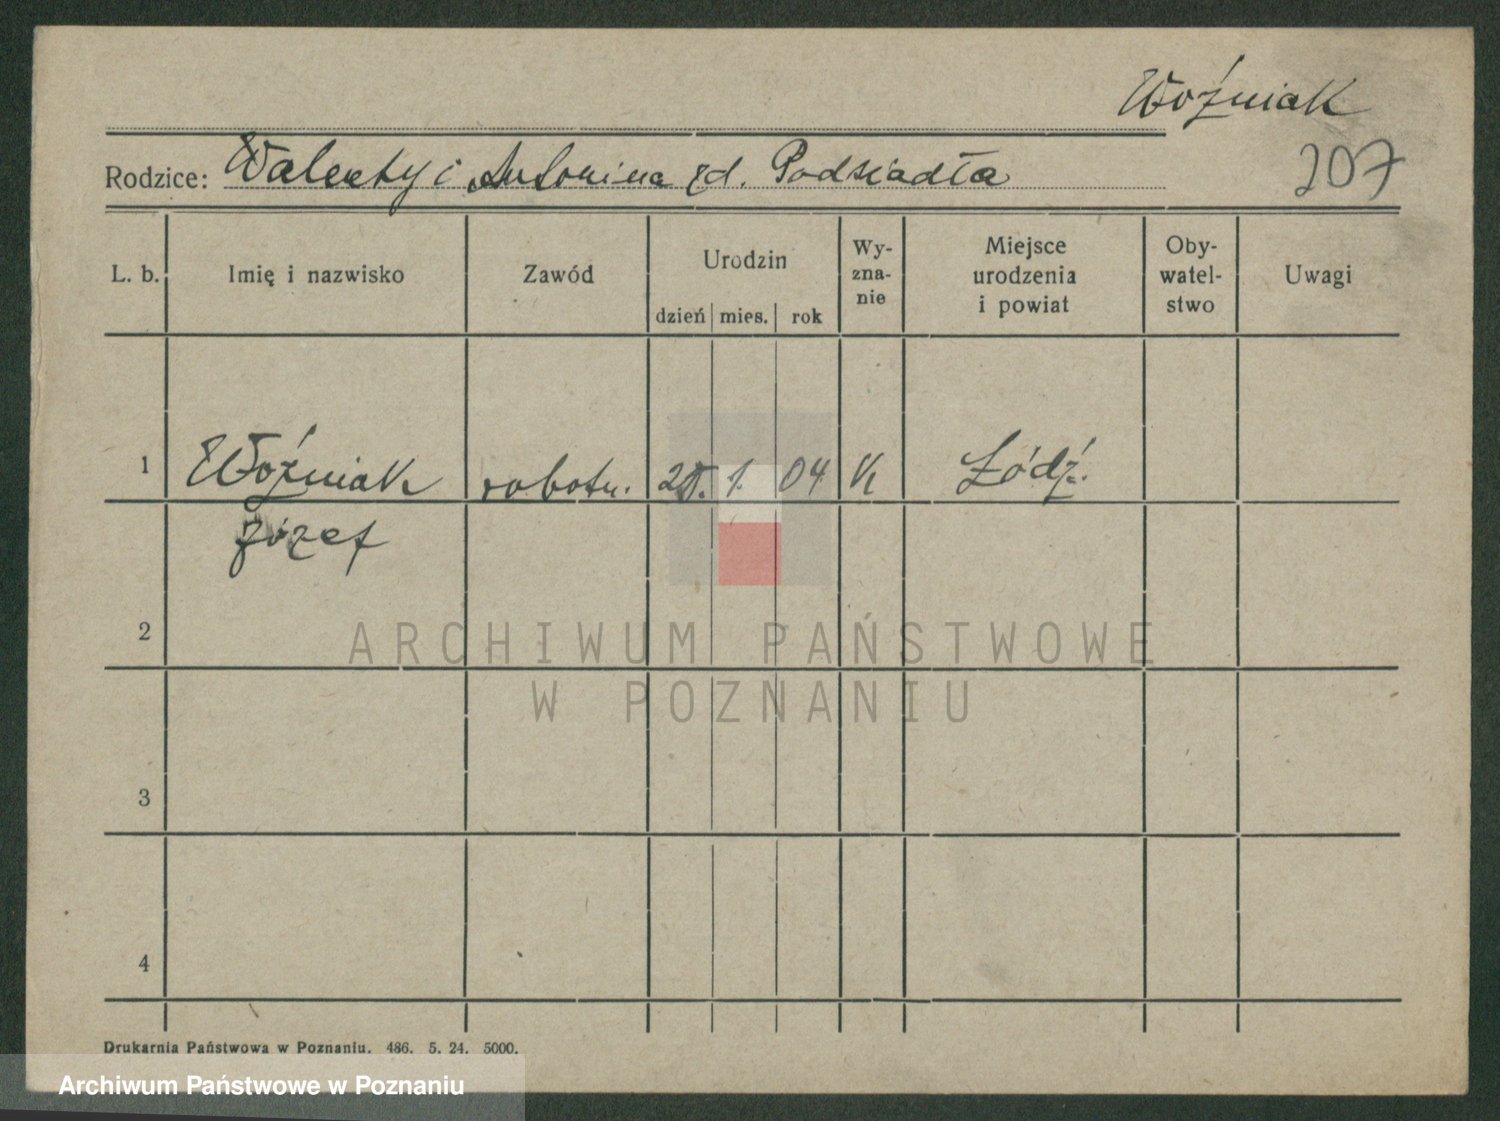 Woźniak
Rodzice: Walenty i Antonina zd. Podsiadła
207
L. b. Imię i nazwisko Zawód Urodzin dzień mies. rok Wy-zna-nie Miejsce urodzenia i powiat Oby-watel-stwo Uwagi
1 Woźniak robotn. 1. 04 K Łódź.
Józef
2
ARCHIWUM PAŃSTWOWE
W POZNANIU
3
4
Drukarnia Państwowa w Poznaniu. 486. 5. 24. 5000.
Archiwum Państwowe w Poznaniu